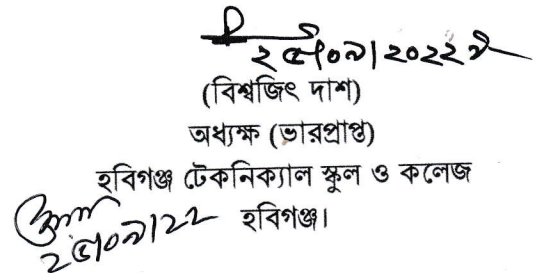 ২৫/০৯/২০২২খ্রি
(বিশ্বজিৎ দাশ)
অধ্যক্ষ (ভারপ্রাপ্ত)
হবিগঞ্জ টেকনিক্যাল স্কুল ও কলেজ
হবিগঞ্জ।
২৫/০৯/২২